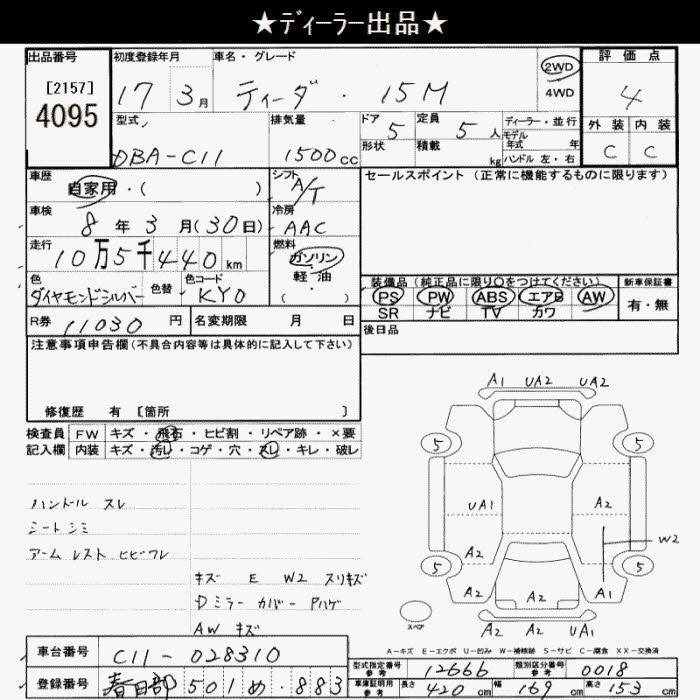 ★ディーラー出品★
出品番号 初度登録年月 車名・グレード 2WD 評価点
[2157] 17 3月 ティーダ・15M 4WD 4
4095 型式 排気量 ドア 5 定員 5人 ディーラー・並行 外装 内装
モデル
DBA-C11 1500cc 形状 積載 kg 年式 年 C C
ハンドル 左・右
車歴 シフト セールスポイント(正常に機能するものに限ります)
自家用・( ) A/T
車検 冷房
8年3月(30日) AAC
走行 燃料
10万5千440km ガソリン
色 色替 色コード 軽・油 装備品(純正品に限り○をつけてください) 新車保証書
ダイヤモンドシルバー KY0 ( ・ ) PS PW ABS エアB AW 有・無
SR ナビ TV カワ
R券 11030円 名変期限 月 日 後日品
注意事項申告欄(不具合内容等は具体的に記入して下さい)
修復歴 有 [箇所 ]
検査員 FW キズ・飛石・ヒビ割・リペア跡・×要
記入欄 内装 キズ・汚レ・コゲ・穴・スレ・キレ・破レ
A1 UA2 UA2
5 5
ハンドル スレ UA1 A2
シート シミ
アーム レスト ヒビワレ A2 A2 W2
5 5
キズ E W2 スリキズ A2 A2 A1
Dミラー カバー Pハゲ
AW キズ スペア A2 A2 UA1
A-キズ E-エクボ U-凹み W-補修跡 S-サビ C-腐食 XX-交換済
車台番号 C11-028310
型式指定番号 参考 12666 類別区分番号 参考 0018
登録番号 春日部 501 め・883
車庫証明用 参考 長さ 420cm 幅 169cm 高さ 153cm